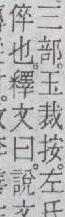 三部。玉裁按。左氏
倅也。釋文曰。說文